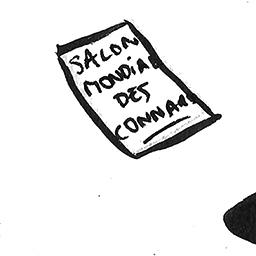 SALON
MONDIAL
DES
CONNARDS